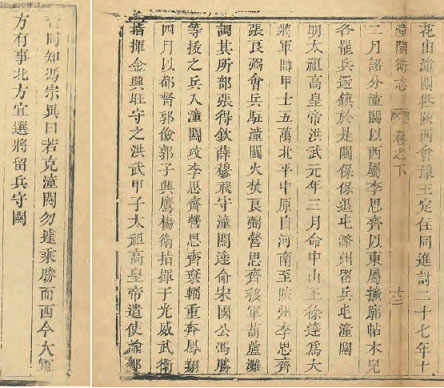 花山潼關與陝西會豫王定任同進討二十七年十
二月部分潼關以西屬李思齊以東屬擴廓帖木兒
各罷兵還鎮於是關保退屯潞州留兵屯潼關
明太祖高皇帝洪武元年三月命中山王徐達為大
將軍帥甲士五萬北平中原自河南至陝州李思齊
張良弼會兵駐潼關火焚良弼營思齊移軍葫蘆灘
調其所部張得欽薛穆飛守潼關達命宋國公馮勝
等按之兵入潼關攻李思齊營思齊棄輜重奔鳳翔
四月以都督郭儉郭子興鷹楊衛指揮于光威武衛
指揮金興旺守之洪武甲子太祖高皇帝遣使諭都
潼關衛志
卷之下
十三
督同知馮宗異曰若克潼關勿遽乘勝而西今大軍
方有事北方宜選將留兵守關